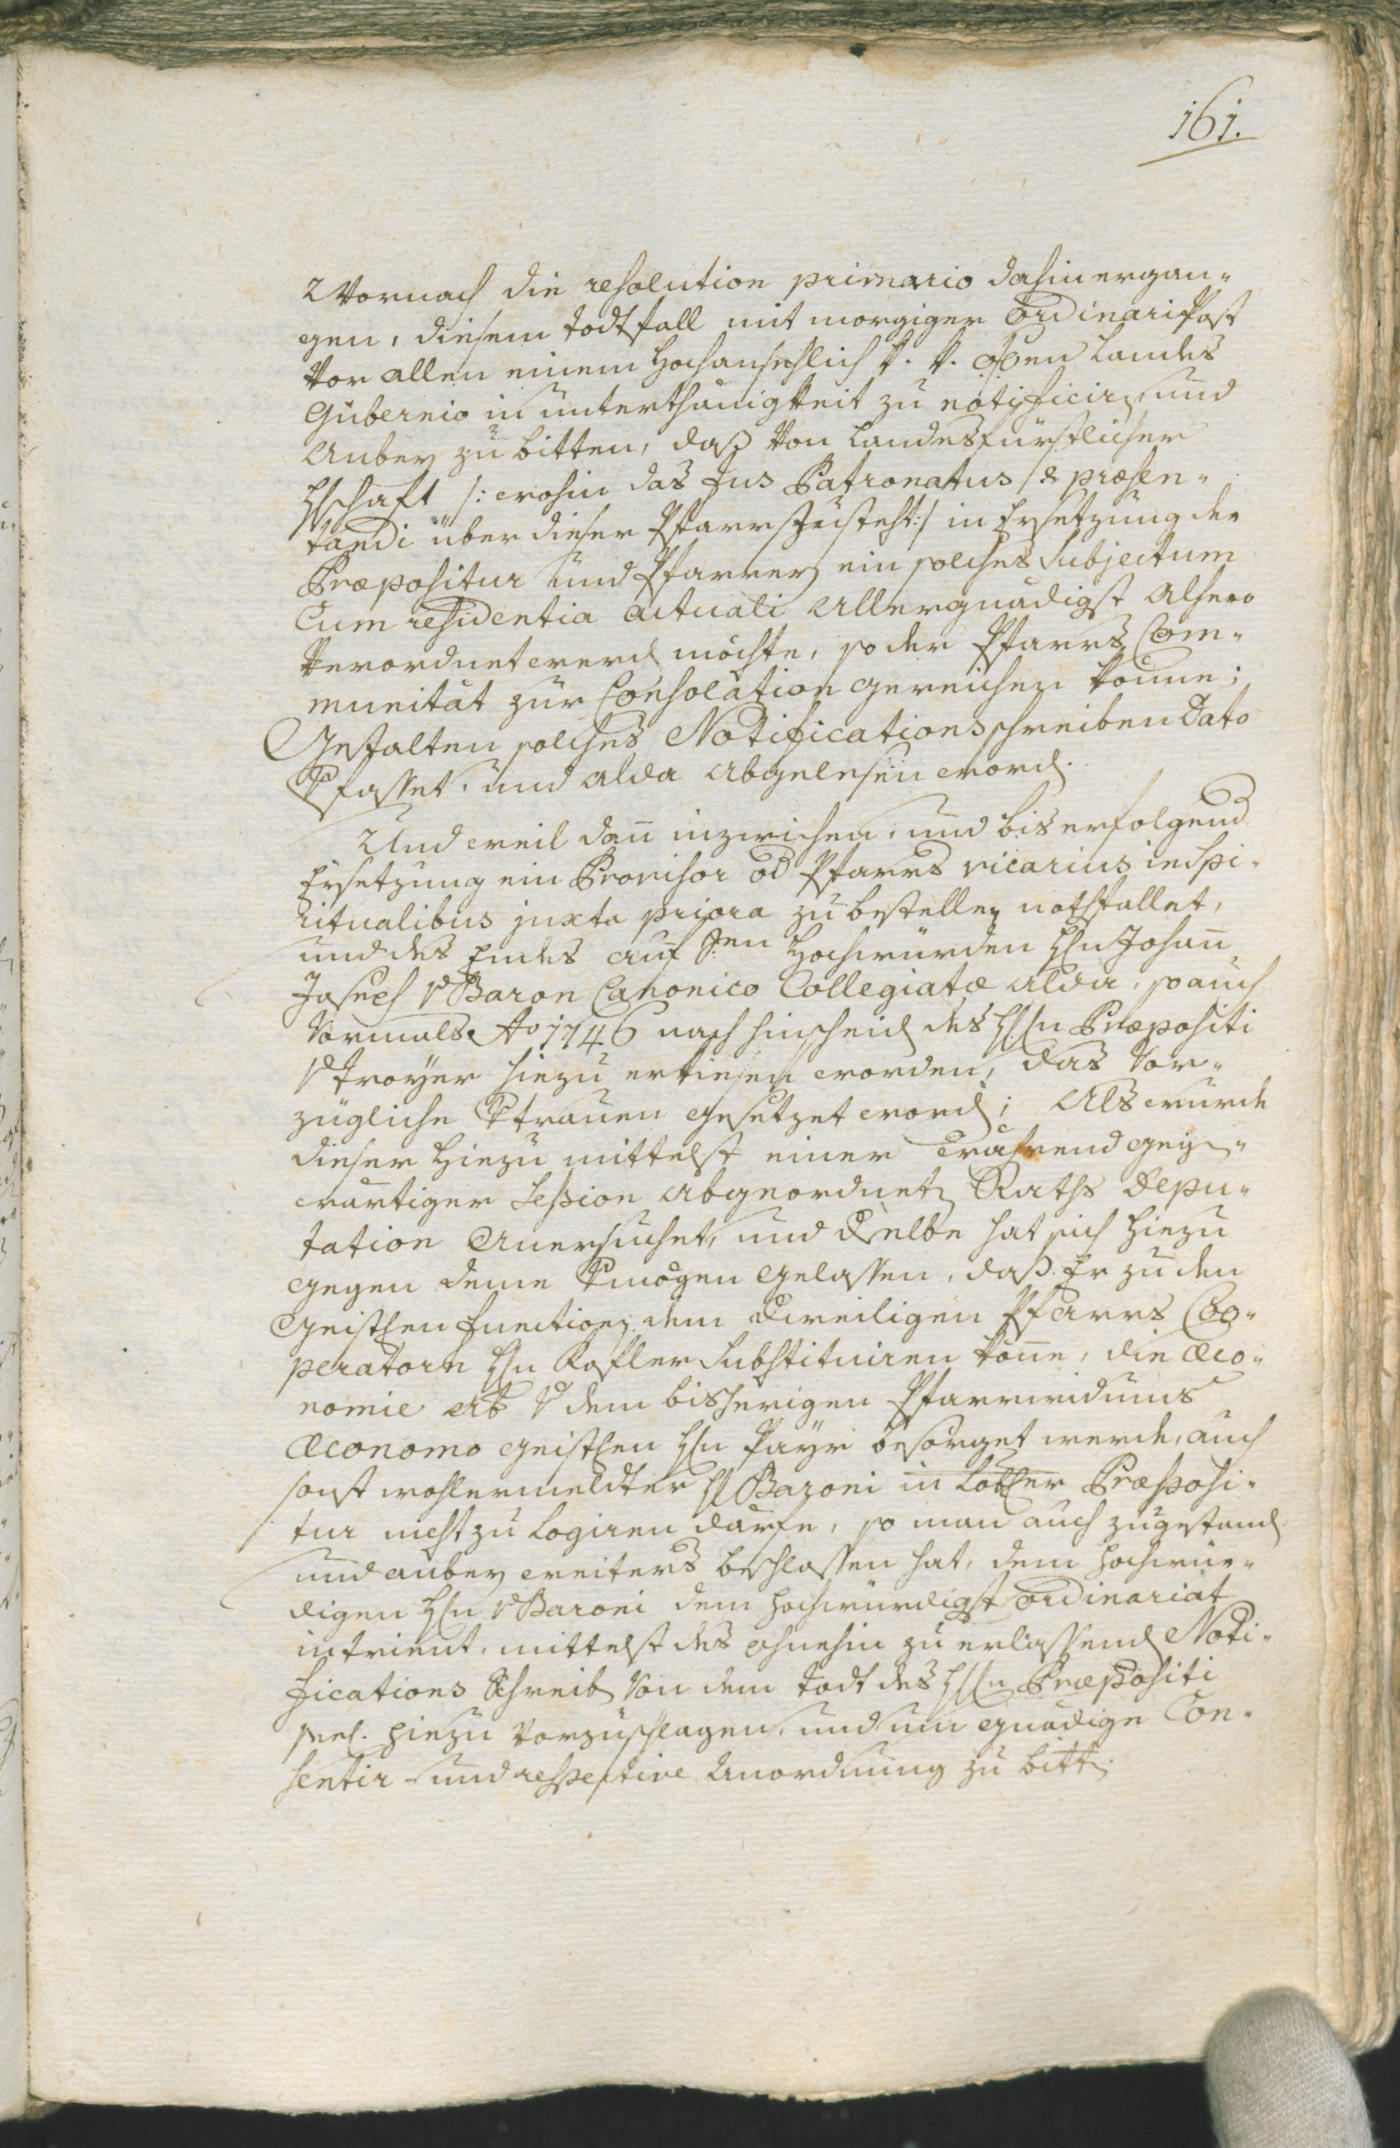 161.
Wornach die resolution primario dahin ergan-
gen, diesem todtfall mit morgiger ordinari Post
vor allen einem hochansehlich k. k. OÖen Landes
Gubernio in unterthänigkeit zu notificirn und
anbey zu bitten, daß von landesfürstlicher
Hschaft /: wohin das Jus Patronatus & præsen-
tandi über dieser Pfarr zusteht :/ in Ersetzung der
Præpositur und Pfarrey ein solches Subjectum
Cum residentia actuali allergnädigst alhero
verordnet werd möchte, so der Pfarrs Com-
munität zur Consolation gereichen könne;
Gestalten solches Notificationsschreiben dato
Vfasset, und alda abgelesen word.
Und weil dan inzwischen, und bis erfolgend
Ersetzung ein Provisor od Pfarrs vicarius in Spi-
ritualibus juxta priora zu bestellen nothfallet,
und des Endes auf Sen Hochwürden Hn Johan
Joseph v Baron Canonico Collegiatæ alda, so auch
vormals Ao 1746 nach hinscheid des HHn Præpositi
v Troyer hiezu erkiesen worden, das vor-
zügliche Vtrauen gesetzet word; Als wurde
dieser hiezu mittelst einer während gegen-
wärtiger Session abgeordnetn Raths Depu-
tation anersuchet, und dselbe hat sich hiezu
gegen deme Vmögen gelassen, daß Er zu den
geistlen functionen den dweiligen Pfarrs Coo-
peratorn Hn Kofler substituiren könne, die Œco-
nomie ab v dem bisherigen Pfarrwidums
Œconomo geistlen Hn Payr besorget werde, auch
sonst wohlermeldter H Baroni in loblher Præposi-
tur nicht zu logiren dürfe, so man auch zugestand
und anbey weiters beschlossen hat, dem Hochwür-
digen Hn v Baroni dem hochwürdigst ordinariat
in trient, mittelst des ohnehin zu erlassend Noti-
fications Schreib von dem todt des HHn Præpositi
seel. hiezu vorzuschlagen, und um gnädige Con-
sentir- und respective Anordnung zu bittn.